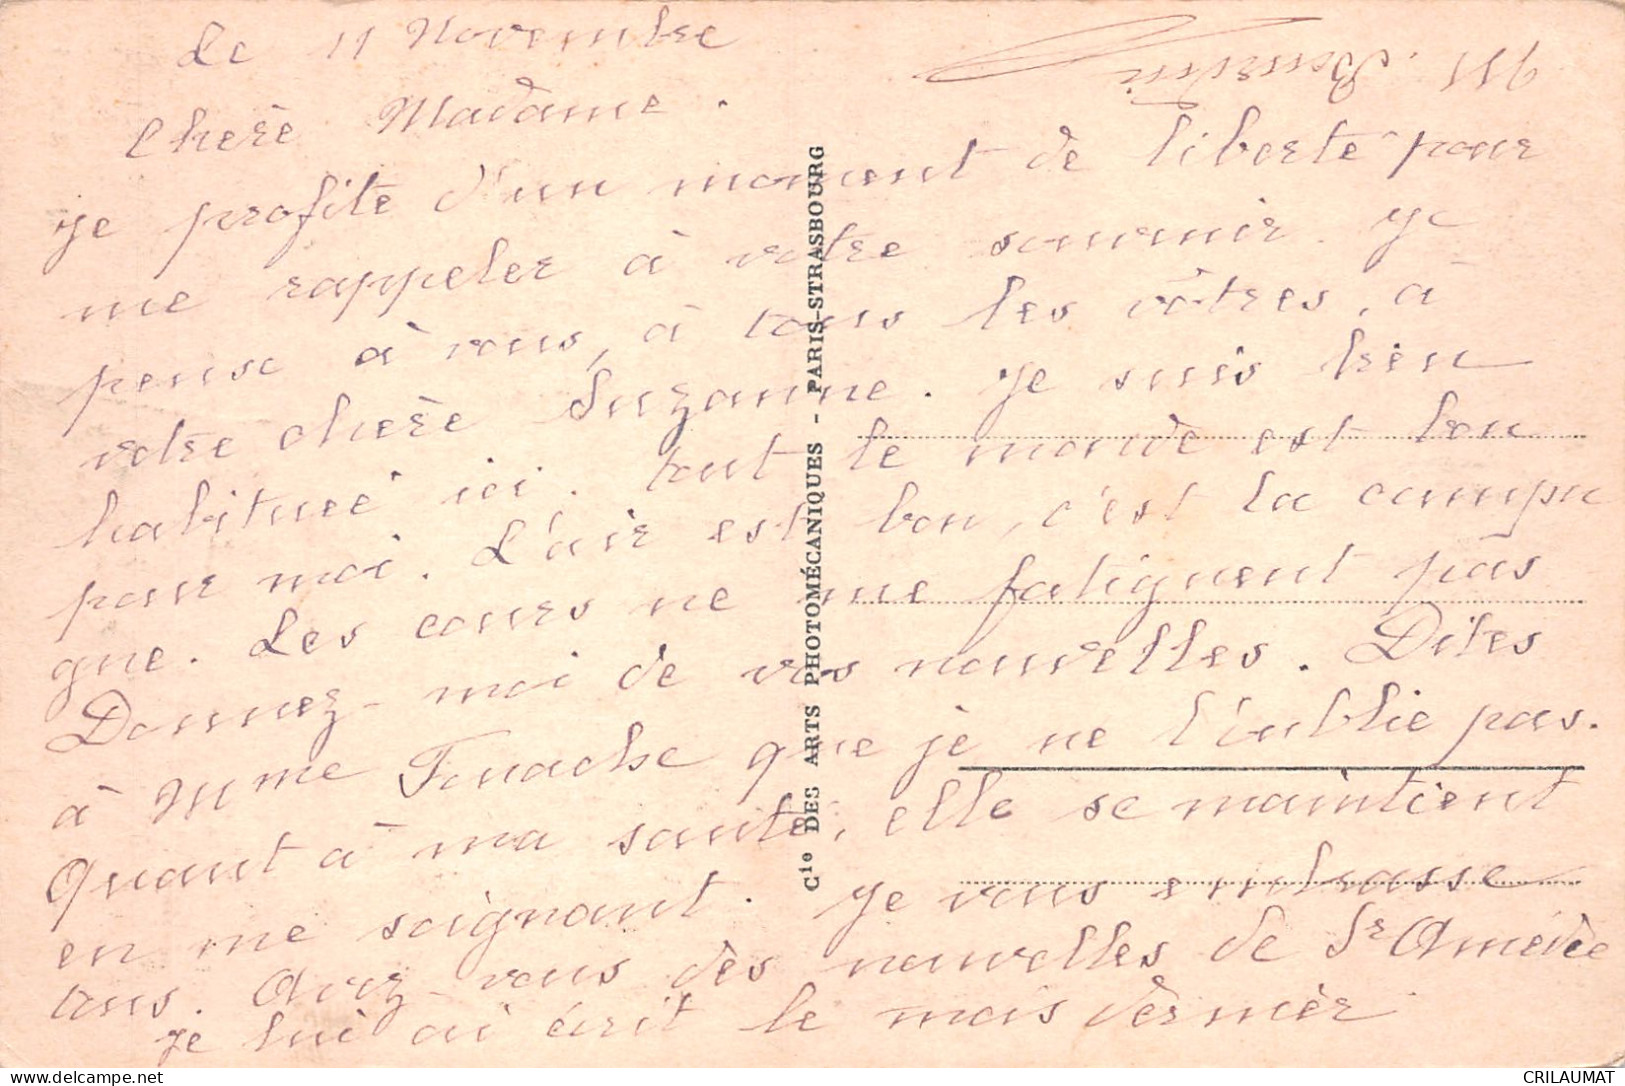 Le 11 Novembre
Cherè Madame.
je profite d'un moment de liberté pour
me rappeler à votre souvenir. je
pense à vous, à tous les vôtres, à
votre cherè Suzanne. je suis bien
habitueé ici. tout le monde est bon
pour moi. L'air est bon, c'est la campa
gne. Les cours ne me fatiguent pas
Donnez-moi de vos nouvelles. Dites
à Mme que je ne l'oublie pas.
Quant à ma santé, elle se maintient
en me soignant. je vous embrasse
tous. Avez-vous dès nouvelles de Sr Amédée
je lui ai écrit le mois dernier
Cie DES ARTS PHOTOMÉCANIQUES - PARIS-STRASBOURG
CRILAUMAT